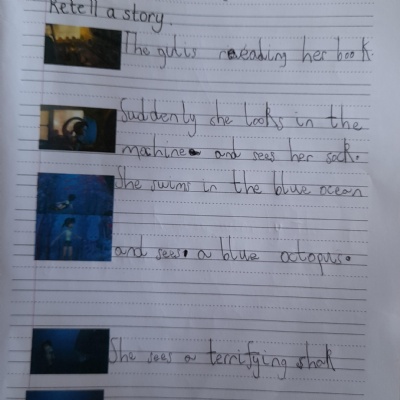 Retell a story.
The gul is reeading her book.
Suddenly she looks in the
mahine and sees her sock.
She swims in the blue ocean
and sees a blue octopus.
She sees a terrifying shak